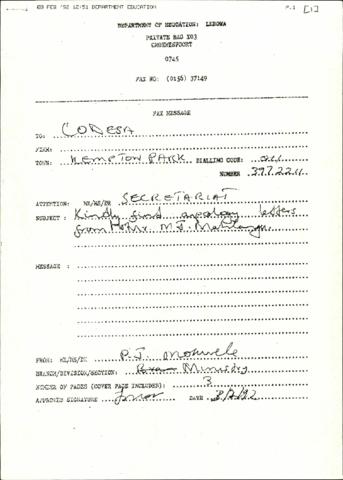 03 FEB '92 12:51 DEPARTMENT EDUCATION P.1 [1]
DEPARTMENT OF EDUCATION: LEBOWA
PRIVATE BAG X03
CHUENESPOORT
0745
FAX NO: (0156) 37149
FAX MESSAGE
TO: CODESA
FIRM:
TOWN: KEMPTON PARK DIALLING CODE: 011
NUMBER 397.2211
ATTENTION: MR/MS/DR SECRETARIAT
SUBJECT : Kindly find apology letters
from Mr. M.J. Mahlangu.
MESSAGE :
FROM: MR/MS/DR P.J. Mokwele
BRANCH/DIVISION/SECTION: Ministry
NUMBER OF PAGES (COVER PAGE INCLUDED): 3
APPROVED SIGNATURE DATE 3/2/92